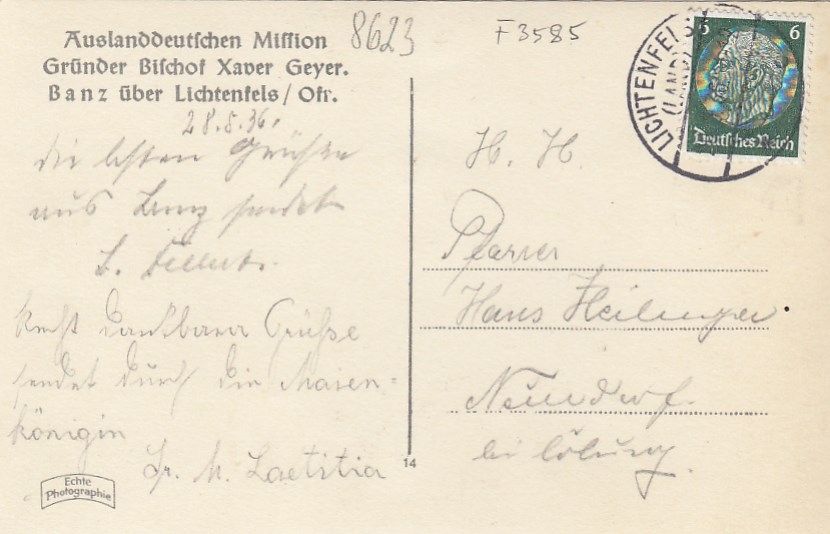 Auslanddeutschen Mission
Gründer Bischof Xaver Geyer.
Banz über Lichtenfels / Ofr.
28.5.36.
die besten Grüße
aus Banz sendet
Recht dankbare Grüße
sendet durch die Maien-
königin
Sr. M. Laetitia
Echte
Photographie
14
8623
F 3585
LICHTENFELS
(LAND)
6 6
Deutsches Reich
H. H.
Pfarrer
Hans Heilinger
Neundorf
bei Coburg